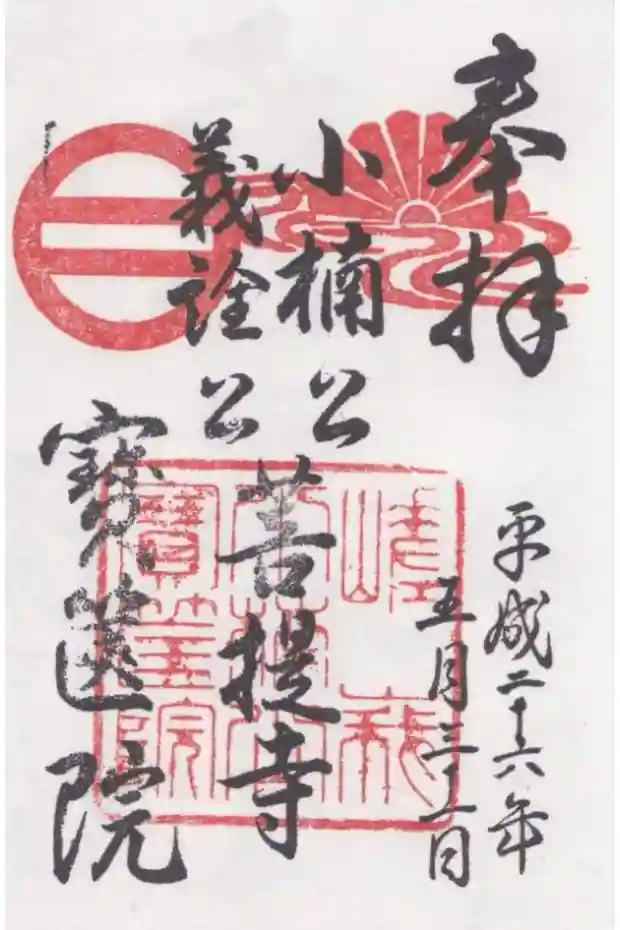 奉拝
平成二十六年
五月三十一日
小楠公
義詮公
菩提寺
寶筐院
嵯峨
寶筐院